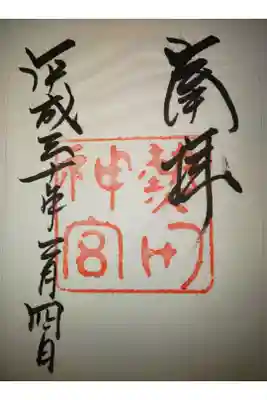 奉拝
熱田神宮
平成三十年二月四日